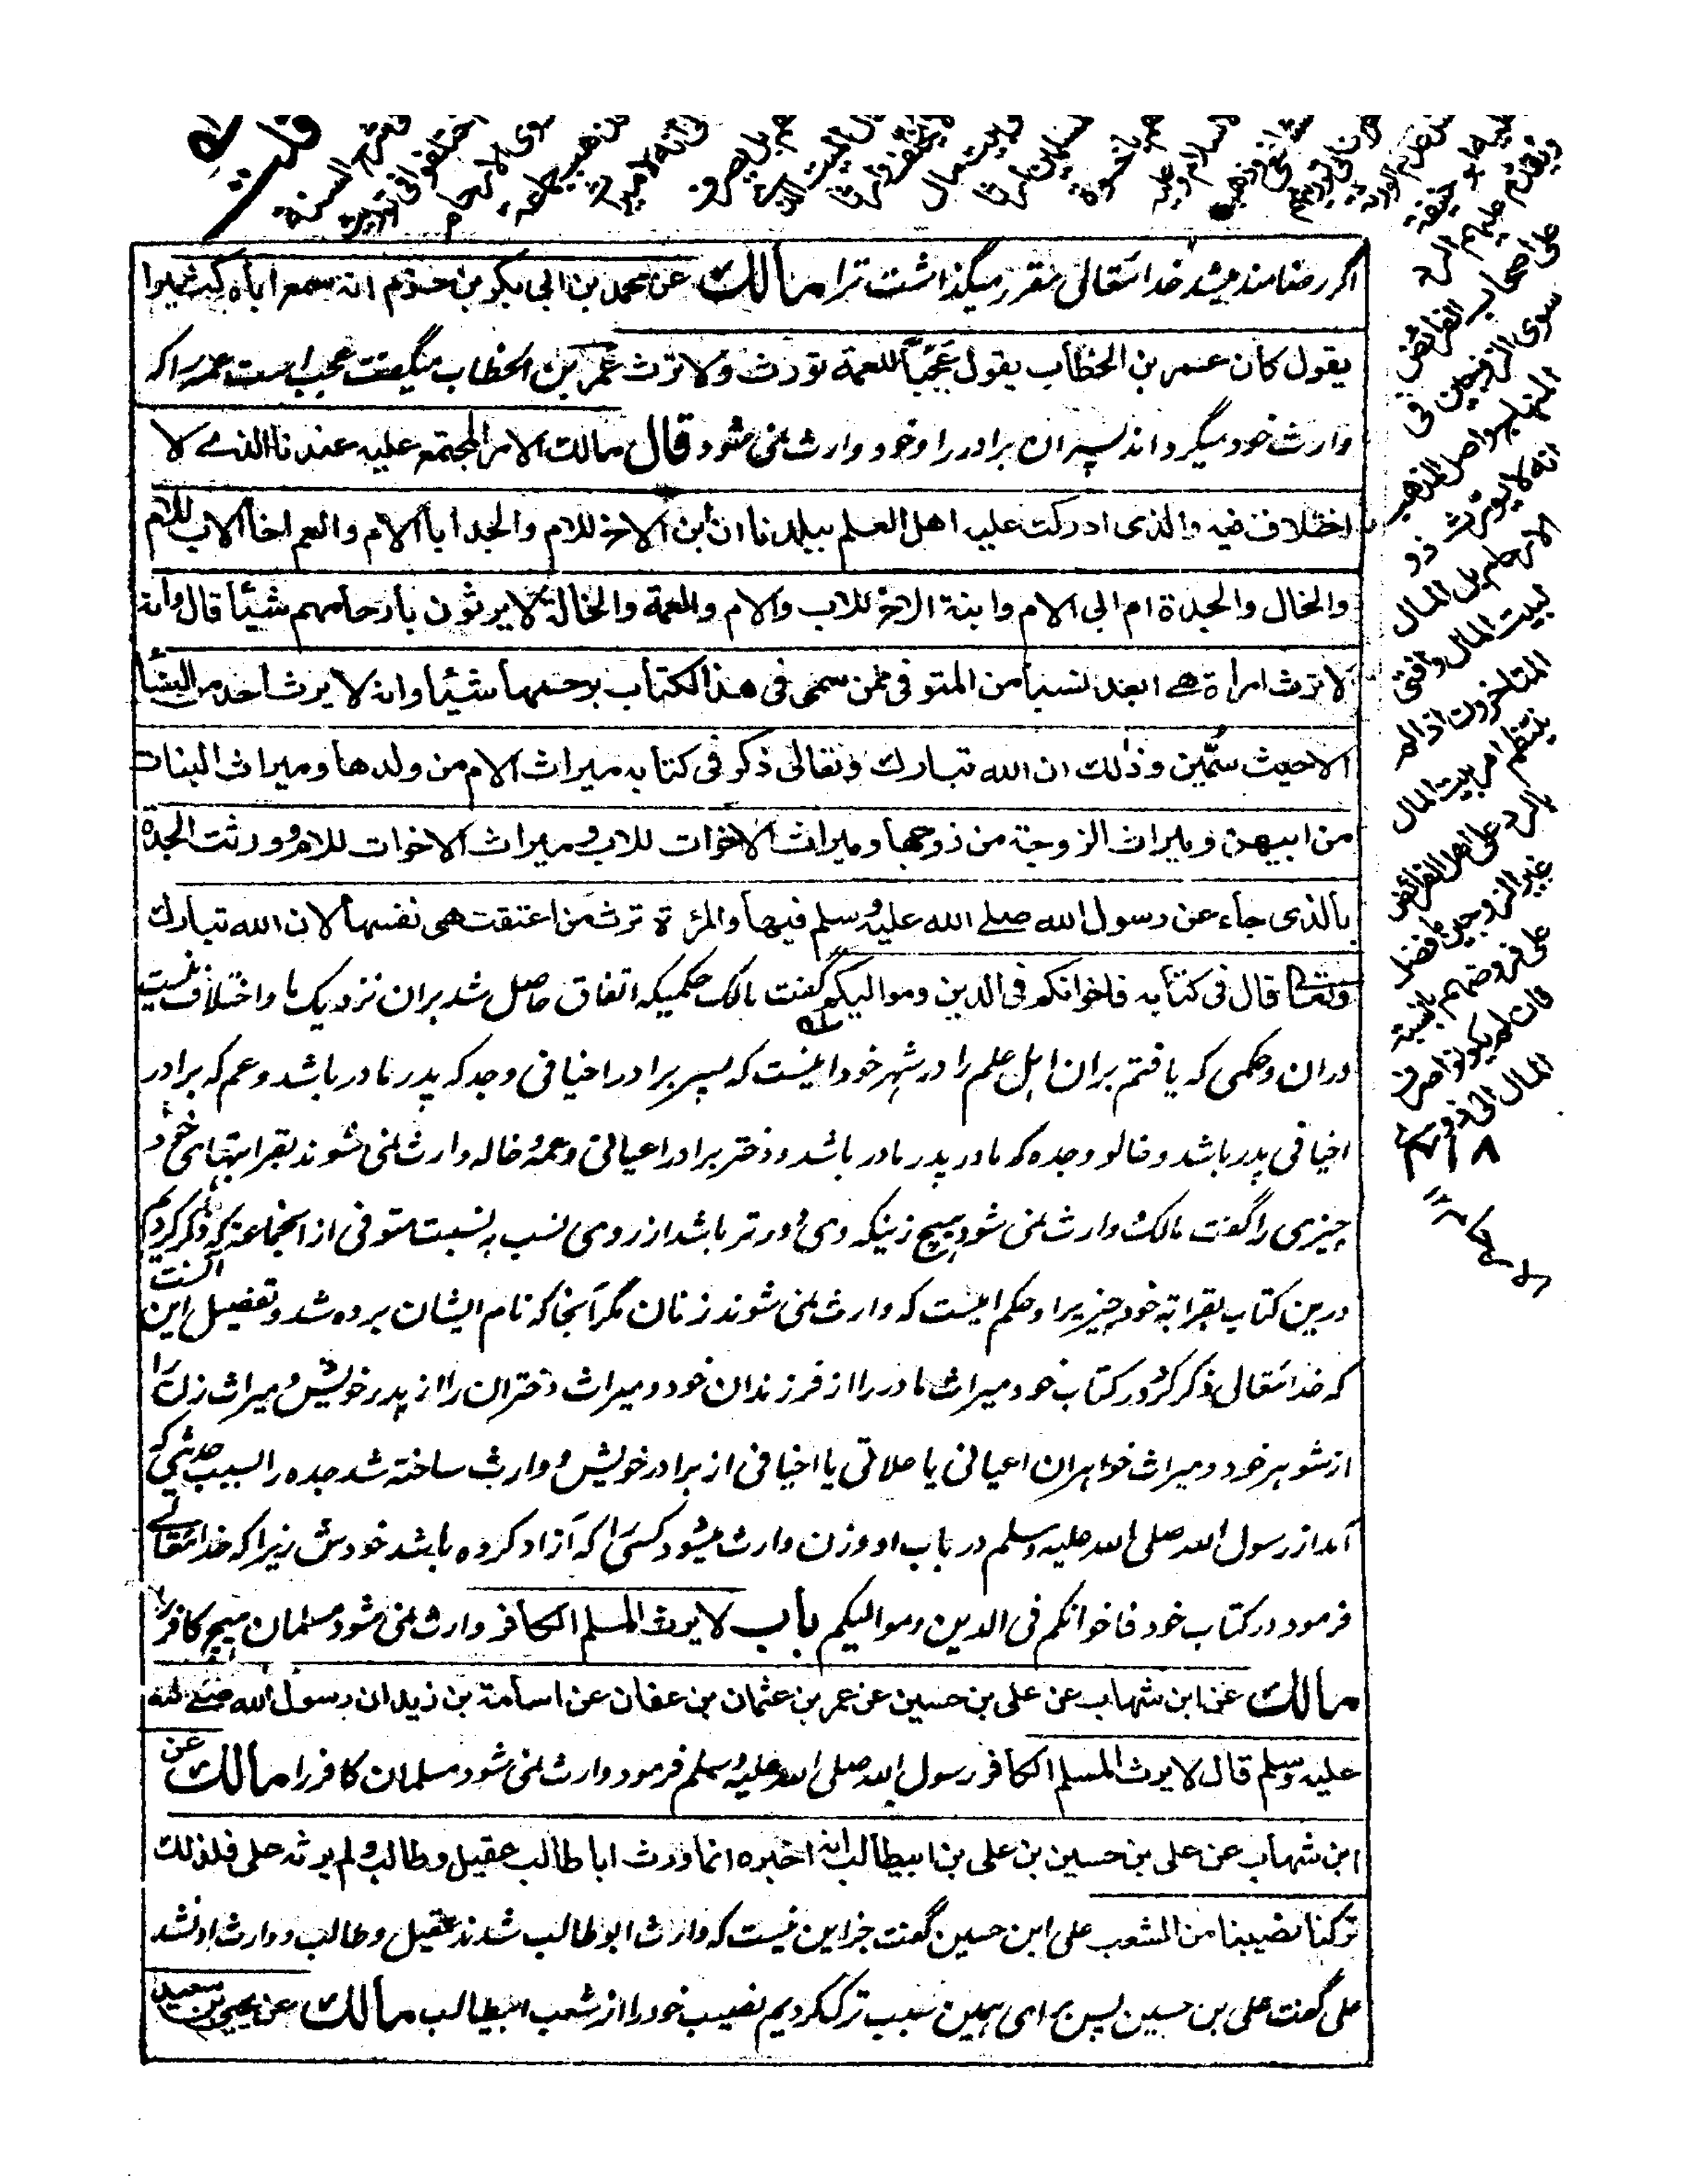 اگر رضامند میشد خدا تعالی مقرر میگذاشت ترا مالك عن محمد بن ابی بکر بن حزم انه سمع اباه کثیرا
یقول کان عمر بن الخطاب یقول عَجَباً للعمة تورث ولا ترث عمر بن الخطاب میگفت عجب است عمه را که
وارث خود میگرداند پسران برادر را و خود وارث نمی شود قال مالك الامر المجتمع علیه عندنا الذی لا
اختلاف فیه والذی ادرکت علیه اهل العلم ببلدنا ان ابن الاخ للام والجد ابا الام والعم اخا الاب للام
والخال والجدة ام ابی الام وابنة الاخ للاب والام والعمة والخالة لا یرثون بارحامهم شیئا قال وانه
لا ترث امراة هی ابعد نسبا من المتوفی ممن سمی فی هذا الکتاب برحمها شیئا وانه لا یرث احد من النساء
الا حیث سُمّین وذلك ان الله تبارك وتعالی ذکر فی کتابه میراث الام من ولدها ومیراث البنات
من ابیهن ومیراث الزوجة من زوجها ومیراث الاخوات للاب ومیراث الاخوات للام وورثت الجدة
بالذی جاء عن رسول الله صلے الله علیه وسلم فیها والمرءة ترث من اعتقت هی نفسها لان الله تبارك
وتعالی قال فی کتابه فاخوانکم فی الدین وموالیکم گفت مالک حکمیکه اتفاق حاصل شد بران نزدیک ما و اختلاف نیست
دران و حکمی که یافتم بران اهل علم را در شهر خود اینست که پسر برادر اخیافی و جد که پدر مادر باشد و عم که برادر
اخیافی پدر باشد و خالو و جده که مادر پدر مادر باشد و دختر برادر اعیانی و عمه و خاله وارث نمی شوند بقرابتهای خود
چیزی را گفت مالک وارث نمی شود هیچ زنیکه وی دورتر باشد از روی نسب به نسبت متوفی از انجماعه که ذکر کردیم
درین کتاب بقرابة خود چیزیرا و حکم اینست که وارث نمی شوند زنان مگر آنجا که نام ایشان برده شد و تفصیل این آنست
که خدا تعالی ذکر کرد در کتاب خود میراث مادر را از فرزندان خود و میراث دختران را از پدر خویش و میراث زن را
از شوهر خود و میراث خواهران اعیانی یا علاتی یا اخیافی از برادر خویش و وارث ساخته شد جده را بسبب حدیثی که
آمد از رسول الله صلی الله علیه وسلم در باب او و زن وارث میشود کسی را که آزاد کرده باشد خودش زیرا که خدا تعالے
فرمود در کتاب خود فاخوانکم فی الدین وموالیکم باب لا یرث المسلم الکافر وارث نمی شود مسلمان هیچ کافر را
مالك عن ابن شهاب عن علی بن حسین عن عمر بن عثمان بن عفان عن اسامة بن زید ان رسول الله صلے الله
علیه وسلم قال لا یرث المسلم الکافر رسول الله صلی الله علیه وسلم فرمود وارث نمی شود مسلمان کافر را مالك عن
ابن شهاب عن علی بن حسین بن علی بن ابیطالب انه اخبره انما ورث ابا طالب عقیل وطالب ولم یرثه علی فلذلك
ترکنا نصیبنا من الشعب علی ابن حسین گفت جز این نیست که وارث ابوطالب شدند عقیل و طالب و وارث او نشد
علی گفت علی بن حسین پس برای همین سبب ترک کردیم نصیب خود را از شعب ابیطالب مالك عن یحیی بن سعید
علی اصحاب الفرائض
سوی الزوجین فی
انه لا یورث ذو
الارحام بل المال
لبیت المال وافتی
المتاخرون اذا لم
ینتظم امر بیت المال
بالرد علی اهل الفرائض
غیر الزوجین ما فضل
علی فروضهم بالنسبة
فان لم یکونوا صرف
المال الی ذوی